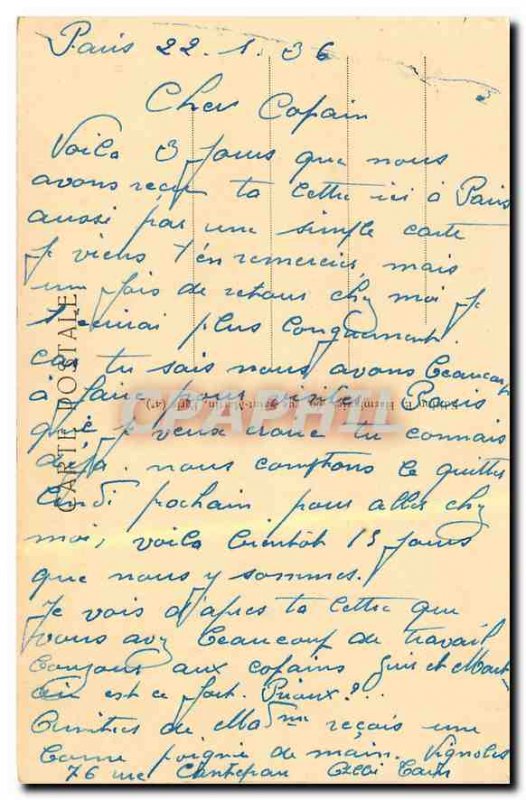 Paris 22.1.36
Cher Copain
Voilà 3 jours que nous
avons reçu ta lettre ici à Paris
aussi par une simple carte
je viens t'en remercier, mais
une fois de retour chez moi je
t'écrirai plus longuement
car tu sais nous avons beaucoup
à faire pour visiter Paris
que je veux croire tu connais
déjà. nous comptons le quitter
lundi prochain pour aller chez
moi, voilà bientôt 15 jours
que nous y sommes.
Je vois d'après ta lettre que
vous avez beaucoup de travail
bonjour aux copains et
est ce fort. Prioux?...
Amitiés de Madme reçois une
bonne poignée de main. Vignoles
76 rue Cantepau Albi Tarn
CARTE POSTALE
CPAPHIL